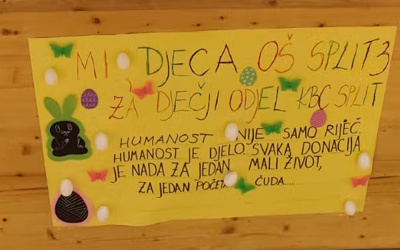 MI DJECA OŠ SPLIT 3
ZA DJEČJI ODJEL KBC SPLIT
HUMANOST NIJE SAMO RIJEČ.
HUMANOST JE DJELO SVAKA DONACIJA
JE NADA ZA JEDAN MALI ŽIVOT,
ZA JEDAN ČUDA